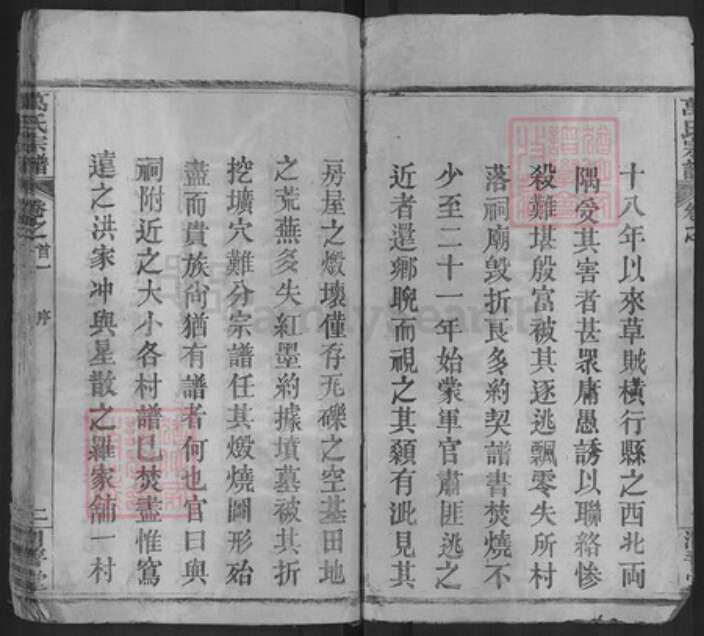 十八年以來草賊橫行縣之西北兩
隅受其害者甚眾庸愚誘以聯絡慘
殺難堪殷富被其逐逃飄零失所村
落祠廟毀折良多約契譜書焚燒不
少至二十一年始蒙軍官肅匪逃之
近者還鄉睨而視之其顙有泚見其
房屋之燬壞僅存瓦礫之空基田地
之荒蕪多失紅墨約據墳墓被其折
挖壙穴難分宗譜任其燬燒圖形殆
盡而貴族尚猶有譜者何也官曰與
祠附近之大小各村譜已焚盡惟窵
遠之洪家冲與星散之羅家舖一村
萬氏宗譜
卷之首一
序
二